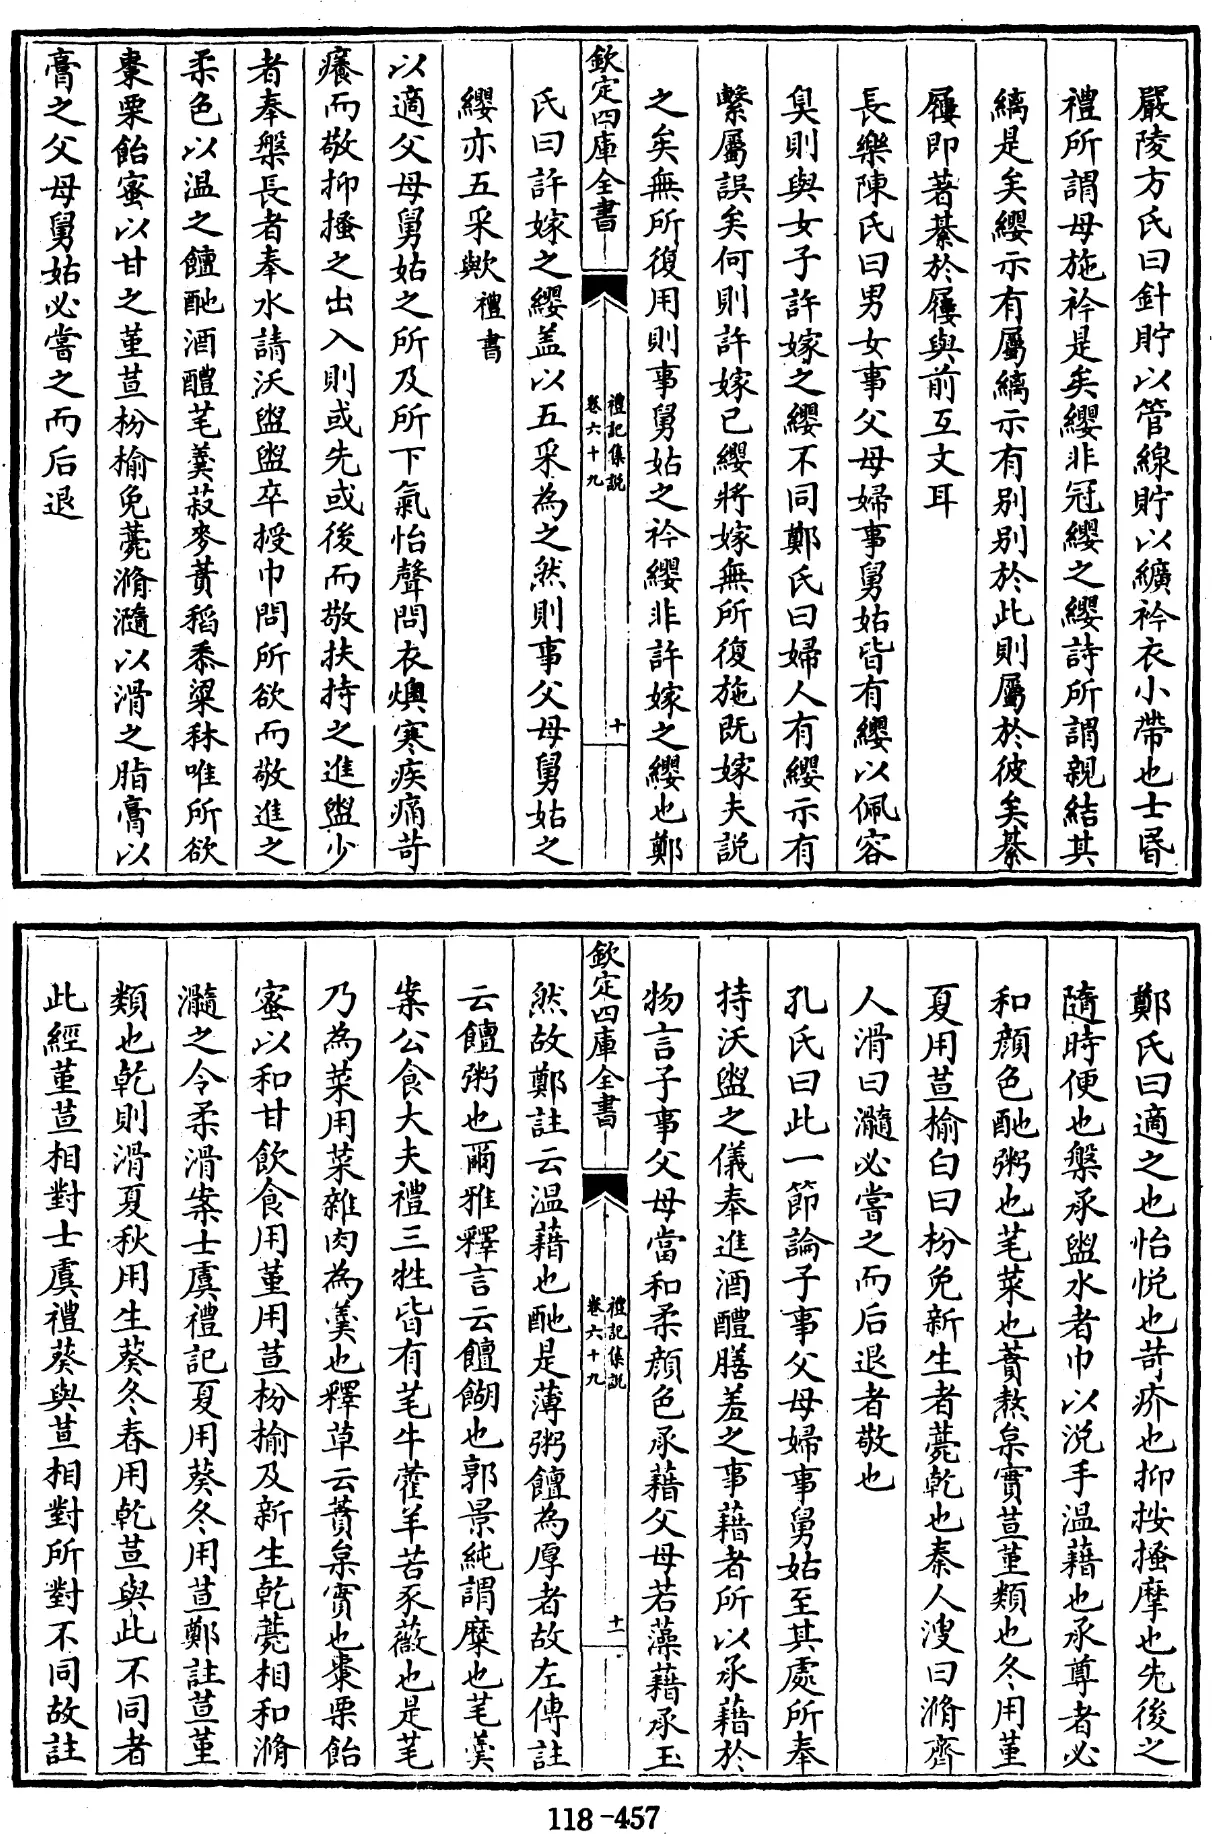 嚴陵方氏曰針貯以管線貯以纊衿衣小帶也士昏
禮所謂母施衿是矣纓非冠纓之纓詩所謂親結其
縭是矣纓示有屬縭示有别别於此則屬於彼矣綦
屨即著綦於屨與前互文耳
長樂陳氏曰男女事父母婦事舅姑皆有纓以佩容
臭則與女子許嫁之纓不同鄭氏曰婦人有纓示有
繫屬誤矣何則許嫁已纓將嫁無所復施既嫁夫説
之矣無所復用則事舅姑之衿纓非許嫁之纓也鄭
欽定四庫全書
禮記集説
卷六十九
十
氏曰許嫁之纓盖以五采為之然則事父母舅姑之
纓亦五采歟禮書
以適父母舅姑之所及所下氣怡聲問衣燠寒疾痛苛
癢而敬抑搔之出入則或先或後而敬扶持之進盥少
者奉槃長者奉水請沃盥盥卒授巾問所欲而敬進之
柔色以温之饘酏酒醴芼羮菽麥蕡稻黍粱秫唯所欲
棗栗飴蜜以甘之菫荁枌榆免薧滫瀡以滑之脂膏以
膏之父母舅姑必嘗之而后退
鄭氏曰適之也怡悦也苛疥也抑按搔摩也先後之
隨時便也槃承盥水者巾以涗手温藉也承尊者必
和顔色酏粥也芼菜也蕡熬枲實荁菫類也冬用菫
夏用荁榆白曰枌免新生者薧乾也秦人溲曰滫齊
人滑曰瀡必嘗之而后退者敬也
孔氏曰此一節論子事父母婦事舅姑至其處所奉
持沃盥之儀奉進酒醴膳羞之事藉者所以承藉於
物言子事父母當和柔顔色承藉父母若藻藉承玉
欽定四庫全書
禮記集説
卷六十九
十一
然故鄭註云温藉也酏是薄粥饘為厚者故左傳註
云饘粥也爾雅釋言云饘餬也郭景純謂糜也芼羮
案公食大夫禮三牲皆有芼牛藿羊苦豕薇也是芼
乃為菜用菜雜肉為羮也釋草云蕡枲實也棗栗飴
蜜以和甘飲食用菫用荁枌榆及新生乾薧相和滫
瀡之令柔滑案士虞禮記夏用葵冬用荁鄭註荁菫
類也乾則滑夏秋用生葵冬春用乾荁與此不同者
此經菫荁相對士虞禮葵與荁相對所對不同故註
118-457